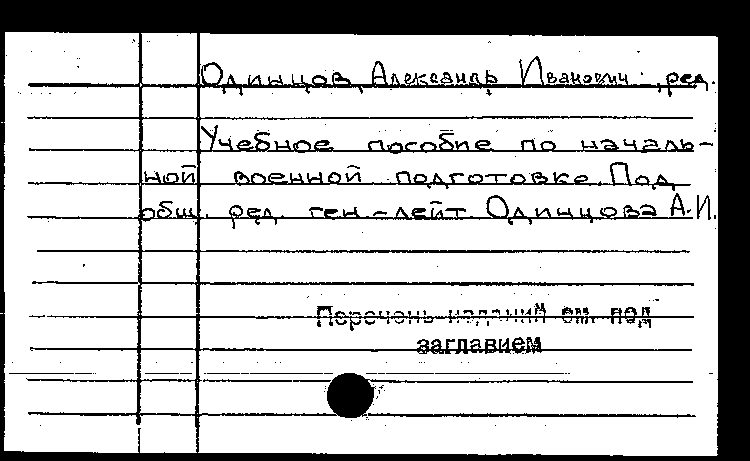 Одинцов, Александр Иванович, ред.
Учебное пособие по началь-
ной военной подготовке. Под
общ. ред. ген.-лейт. Одинцова А.И.
Перечень изданий см. под
заглавием